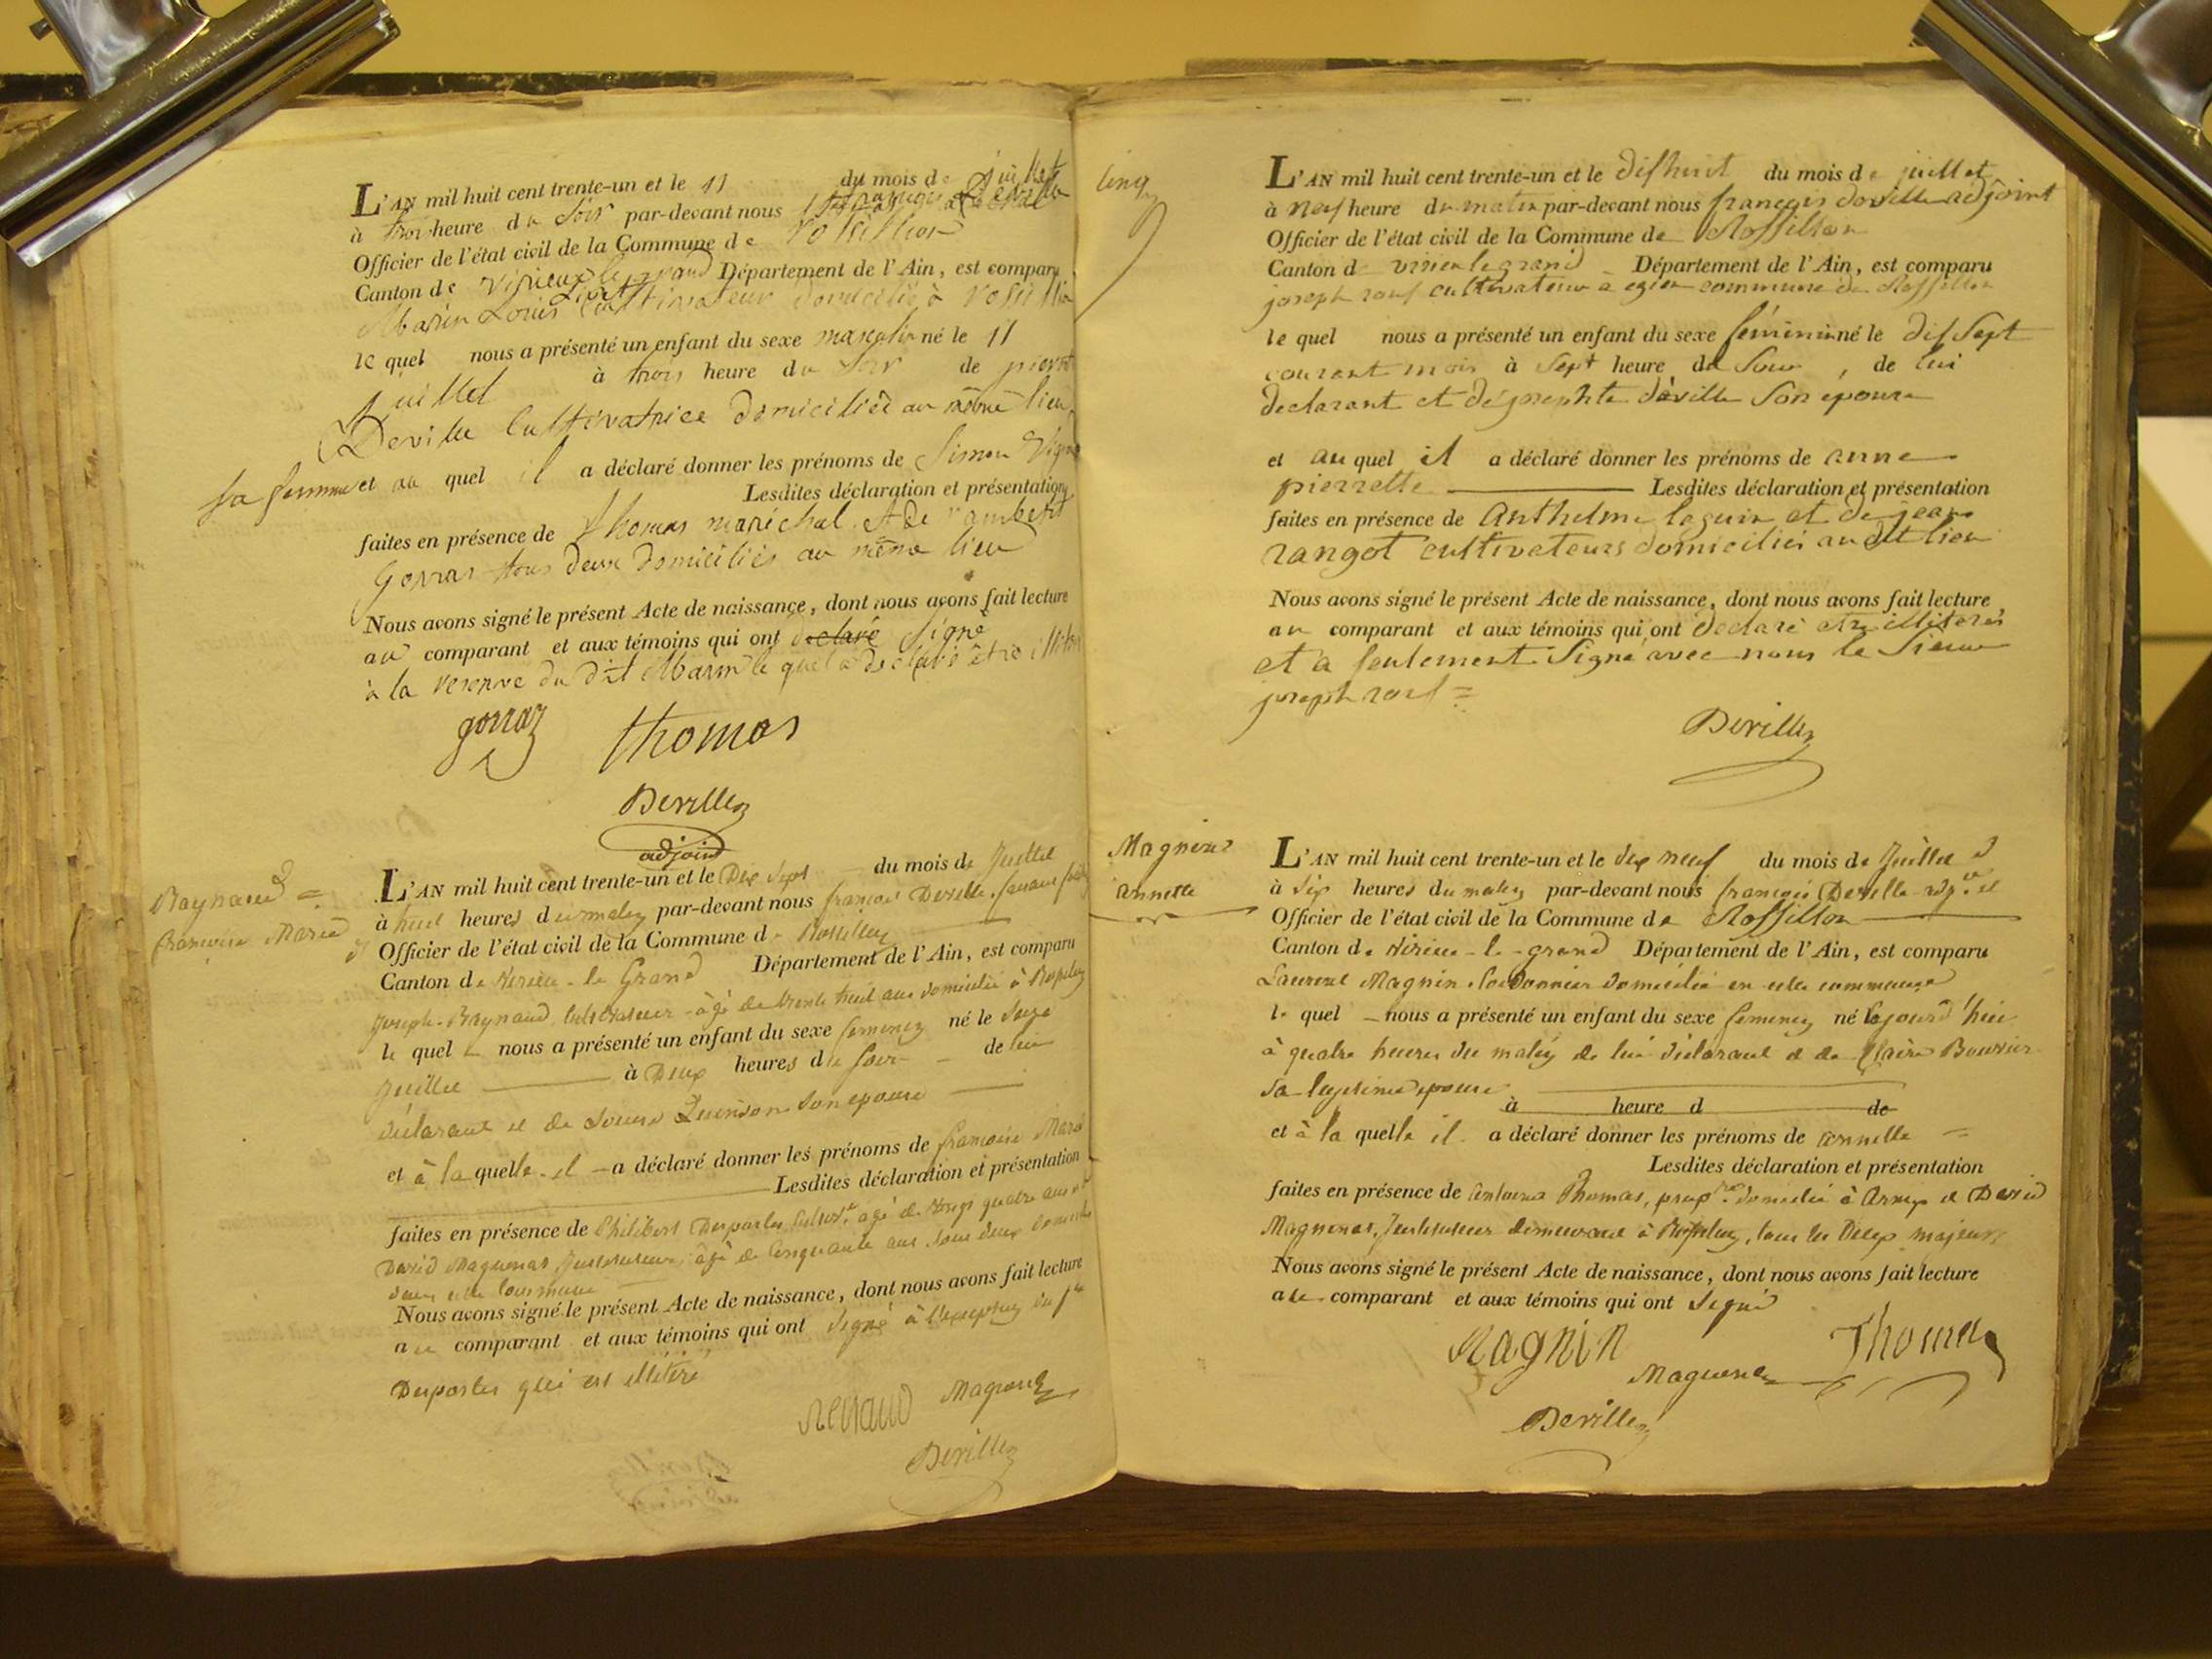 L'AN mil huit cent trente-un et le 11 du mois de juillet
à trois heure du soir par-devant nous
Officier de l'état civil de la Commune de Rossillon
Canton de virieux le grand Département de l'Ain, est comparu
Marin Louis Cultivateur domicilié à
le quel nous a présenté un enfant du sexe masculin né le 11
juillet à trois heure du soir de pierrette
Deville Cultivatrice domiciliée au même lieu
sa femme et au quel il a déclaré donner les prénoms de Simon
Lesdites déclaration et présentation
faites en présence de thomas maréchal et de rambert
gorraz tous deux domiciliés au même lieu
Nous avons signé le présent Acte de naissance, dont nous avons fait lecture
au comparant et aux témoins qui ont declaré signé
à la reserve du dit Marin le quel a déclaré être
gorraz
thomas
Deville
adjoint
Raynaud =
francoise Marie
L'AN mil huit cent trente-un et le Dix Sept du mois de Juillet
à huit heures du matin par-devant nous françois Deville
Officier de l'état civil de la Commune de
Canton de Virieu-le Grand Département de l'Ain, est comparu
Joseph Raynaud Cultivateur âgé de trente huit ans domicilié à
le quel nous a présenté un enfant du sexe feminin né le
Juillet à Deux heures du soir de lui
déclarant et de son epouse
et à la quelle il a déclaré donner les prénoms de francoise Marie
Lesdites déclaration et présentation
faites en présence de Philibert Desportes âgé de vingt quatre ans et
David Magnenat Instituteur, âgé de Cinquante ans tous deux
dans cette Commune
Nous avons signé le présent Acte de naissance, dont nous avons fait lecture
au comparant et aux témoins qui ont signé à
Desportes qui est illitéré
Renaud
Deville
L'AN mil huit cent trente-un et le dishuit du mois de juillet
à neuf heure du matin par-devant nous françois deville adjoint
Officier de l'état civil de la Commune de Rossillon
Canton de virieu le grand Département de l'Ain, est comparu
joseph cultivateur a commune de Rossillon
le quel nous a présenté un enfant du sexe féminin né le dis sept
courant mois à sept heure du soir, de lui
declarant et de deville son épouse
et au quel il a déclaré donner les prénoms de anne
pierrette Lesdites déclaration et présentation
faites en présence de anthelme et de jean
rangot cultivateurs domiciliés au dit lieu
Nous avons signé le présent Acte de naissance, dont nous avons fait lecture
au comparant et aux témoins qui ont declaré etre
et a seulement signé avec nous le sieur
joseph
Deville
annette
L'AN mil huit cent trente-un et le dix neuf du mois de Juillet
à six heures du matin par-devant nous françois Deville
Officier de l'état civil de la Commune de Rossillon
Canton de Virieu-le-grand Département de l'Ain, est comparu
Laurent Magnin domicilié en cette commune
le quel nous a présenté un enfant du sexe feminin né
à quatre heures du matin de lui déclarant et de Claire
sa legitime epouse
à heure d de
et à la quelle il a déclaré donner les prénoms de annette =
Lesdites déclaration et présentation
faites en présence de Thomas, domicilié à et David
Instituteur demeurant à tous les Deux majeurs
Nous avons signé le présent Acte de naissance, dont nous avons fait lecture
au comparant et aux témoins qui ont signé
Magnin
Thomas
Deville